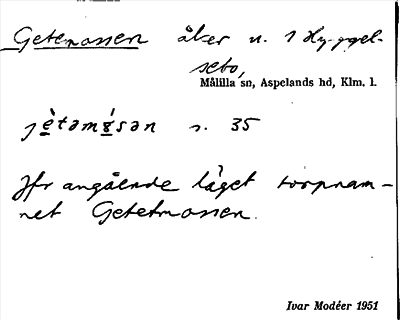 Getemossen åker n. 1 Hyggel-
sebo,
Målilla sn, Aspelands hd, Klm. l.
s. 35
Jfr angående läget torpnam-
net Getetmossen.
Ivar Modéer 1951